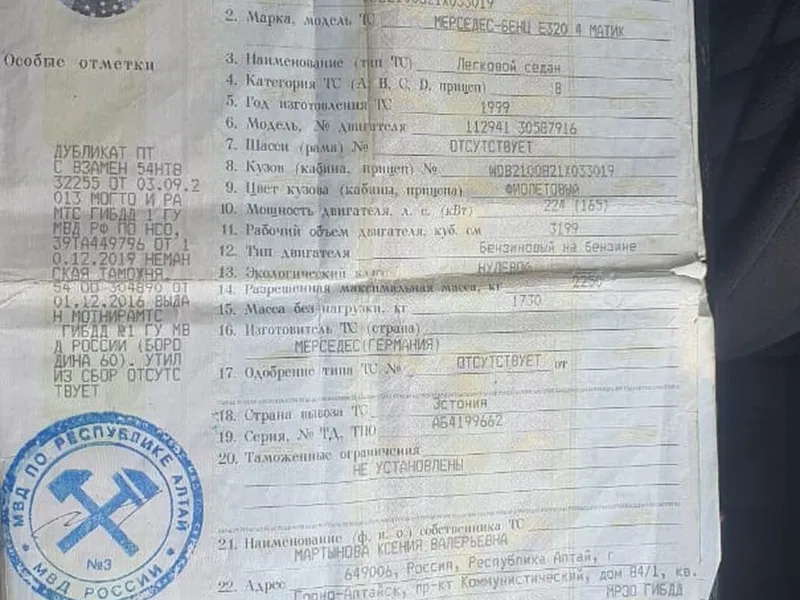 2. Марка, модель ТС МЕРСЕДЕС-БЕНЦ Е320 4 МАТИК
Особые отметки
3. Наименование (тип ТС) Легковой седан
4. Категория ТС (А, В, С, D, прицеп) В
5. Год изготовления ТС 1999
6. Модель, № двигателя 112941 30587916
7. Шасси (рама) № ОТСУТСТВУЕТ
8. Кузов (кабина, прицеп) № WDB2100821X033019
9. Цвет кузова (кабина, прицепа) ФИОЛЕТОВЫЙ
10. Мощность двигателя, л. с. (кВт) 224 (165)
11. Рабочий объем двигателя, куб. см 3199
12. Тип двигателя Бензиновый на бензине
13. Экологический класс НУЛЕВОЙ
14. Разрешенная максимальная масса, кг 2250
15. Масса без нагрузки, кг 1730
16. Изготовитель ТС (страна)
МЕРСЕДЕС(ГЕРМАНИЯ)
17. Одобрение типа ТС № ОТСУТСТВУЕТ от
18. Страна вывоза ТС ЭСТОНИЯ
19. Серия, № ТД, ТПО АБ4199662
20. Таможенные ограничения
НЕ УСТАНОВЛЕНЫ
21. Наименование (ф. и. о.) собственника ТС
МАРТЫНОВА КСЕНИЯ ВАЛЕРЬЕВНА
22. Адрес 649006, Россия, Республика Алтай, г
Горно-Алтайск, пр-кт Коммунистический, дом 84/1, кв.
МРЭО ГИБДД
ДУБЛИКАТ ПТ
С ВЗАМЕН 54НТ8
32255 ОТ 03.09.2
013 МОГТО И РА
МТС ГИБДД 1 ГУ
МВД РФ ПО НСО,
39ТА449796 ОТ 1
0.12.2019 НЕМАН
СКАЯ ТАМОЖНЯ.
54 ОО 304890 ОТ
01.12.2016 ВЫДА
Н МОТНИРАМТС
ГИБДД №1 ГУ МВ
Д РОССИИ (БОРО
ДИНА 60). УТИЛ
ИЗ СБОР ОТСУТС
ТВУЕТ
МВД ПО РЕСПУБЛИКЕ АЛТАЙ
№3
МВД РОССИИ